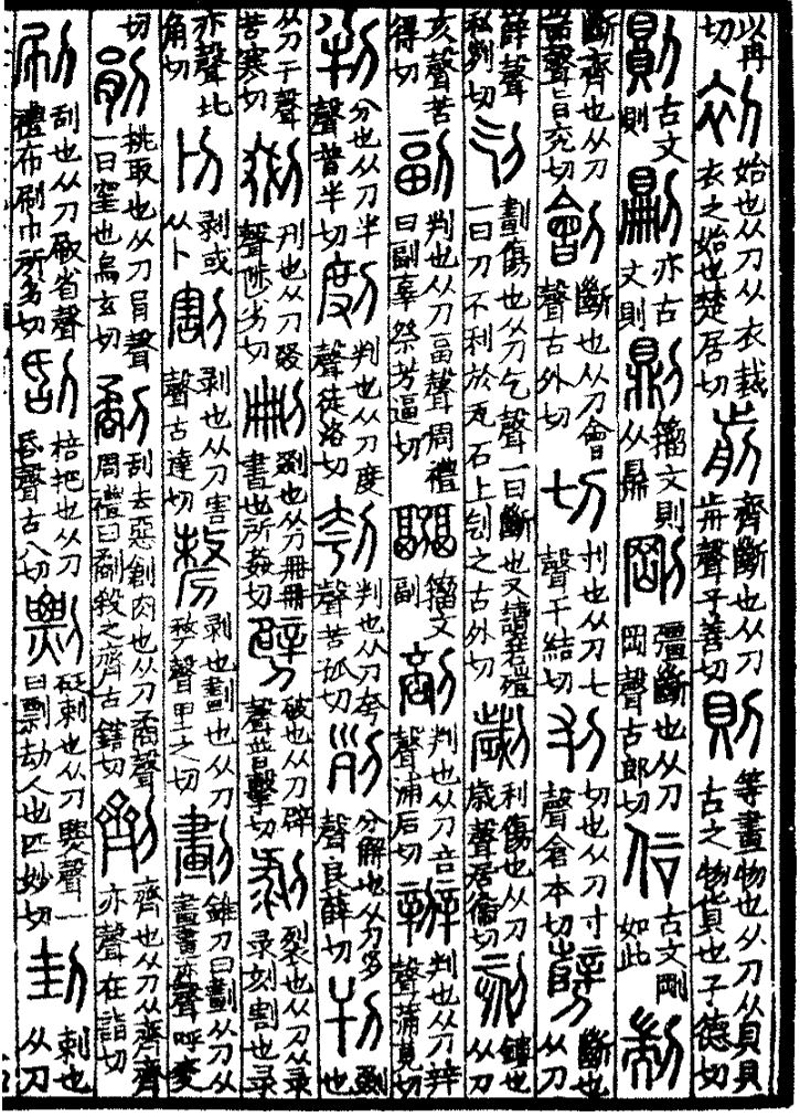 以冉切初始也从刀从衣裁衣之始也楚居切前齊斷也从刀歬聲子善切則等畫物也从刀从貝貝古之物貨也子德切
𠟭古文則𠟻亦古文則𠞋籒文則从鼎剛彊斷也从刀岡聲古郎切𠇙古文剛如此制
斷齊也从刀耑聲旨兗切劊斷也从刀會聲古外切切刌也从刀七聲千結切刌切也从刀寸聲倉本切𠠫斷也从刀
辥聲私列切刉劃傷也从刀乞聲一曰斷也又讀若磑一曰刀不利於瓦石上刉之古外切劌利傷也从刀歲聲居衞切刻鏤也从刀
亥聲苦得切副判也从刀畐聲周禮曰副辜祭芳逼切疈籒文副剖判也从刀咅聲浦后切辦判也从刀辡聲蒲莧切
判分也从刀半聲普半切剫判也从刀度聲徒洛切刳判也从刀夸聲苦孤切列分解也从刀𡿪聲良薛切刊剟也
从刀干聲苦寒切剟刊也从刀叕聲陟劣切刪剟也从刀册册書也所姦切劈破也从刀辟聲普擊切剝裂也从刀从录录刻割也录
亦聲北角切㓦剝或从卜割剝也从刀害聲古達切剺剝也劃也从刀𠩺聲里之切劃錐刀曰劃从刀从畫畫亦聲呼麥
切剈挑取也从刀肙聲一曰窐也烏玄切劀刮去惡創肉也从刀矞聲周禮曰劀殺之齊古鎋切劑齊也从刀从齊齊亦聲在詣切
刷刮也从刀㕞省聲禮布刷巾所劣切刮掊把也从刀𠯑聲古八切剽砭刺也从刀㶾聲一曰剽劫人也匹妙切刲刺也从刀